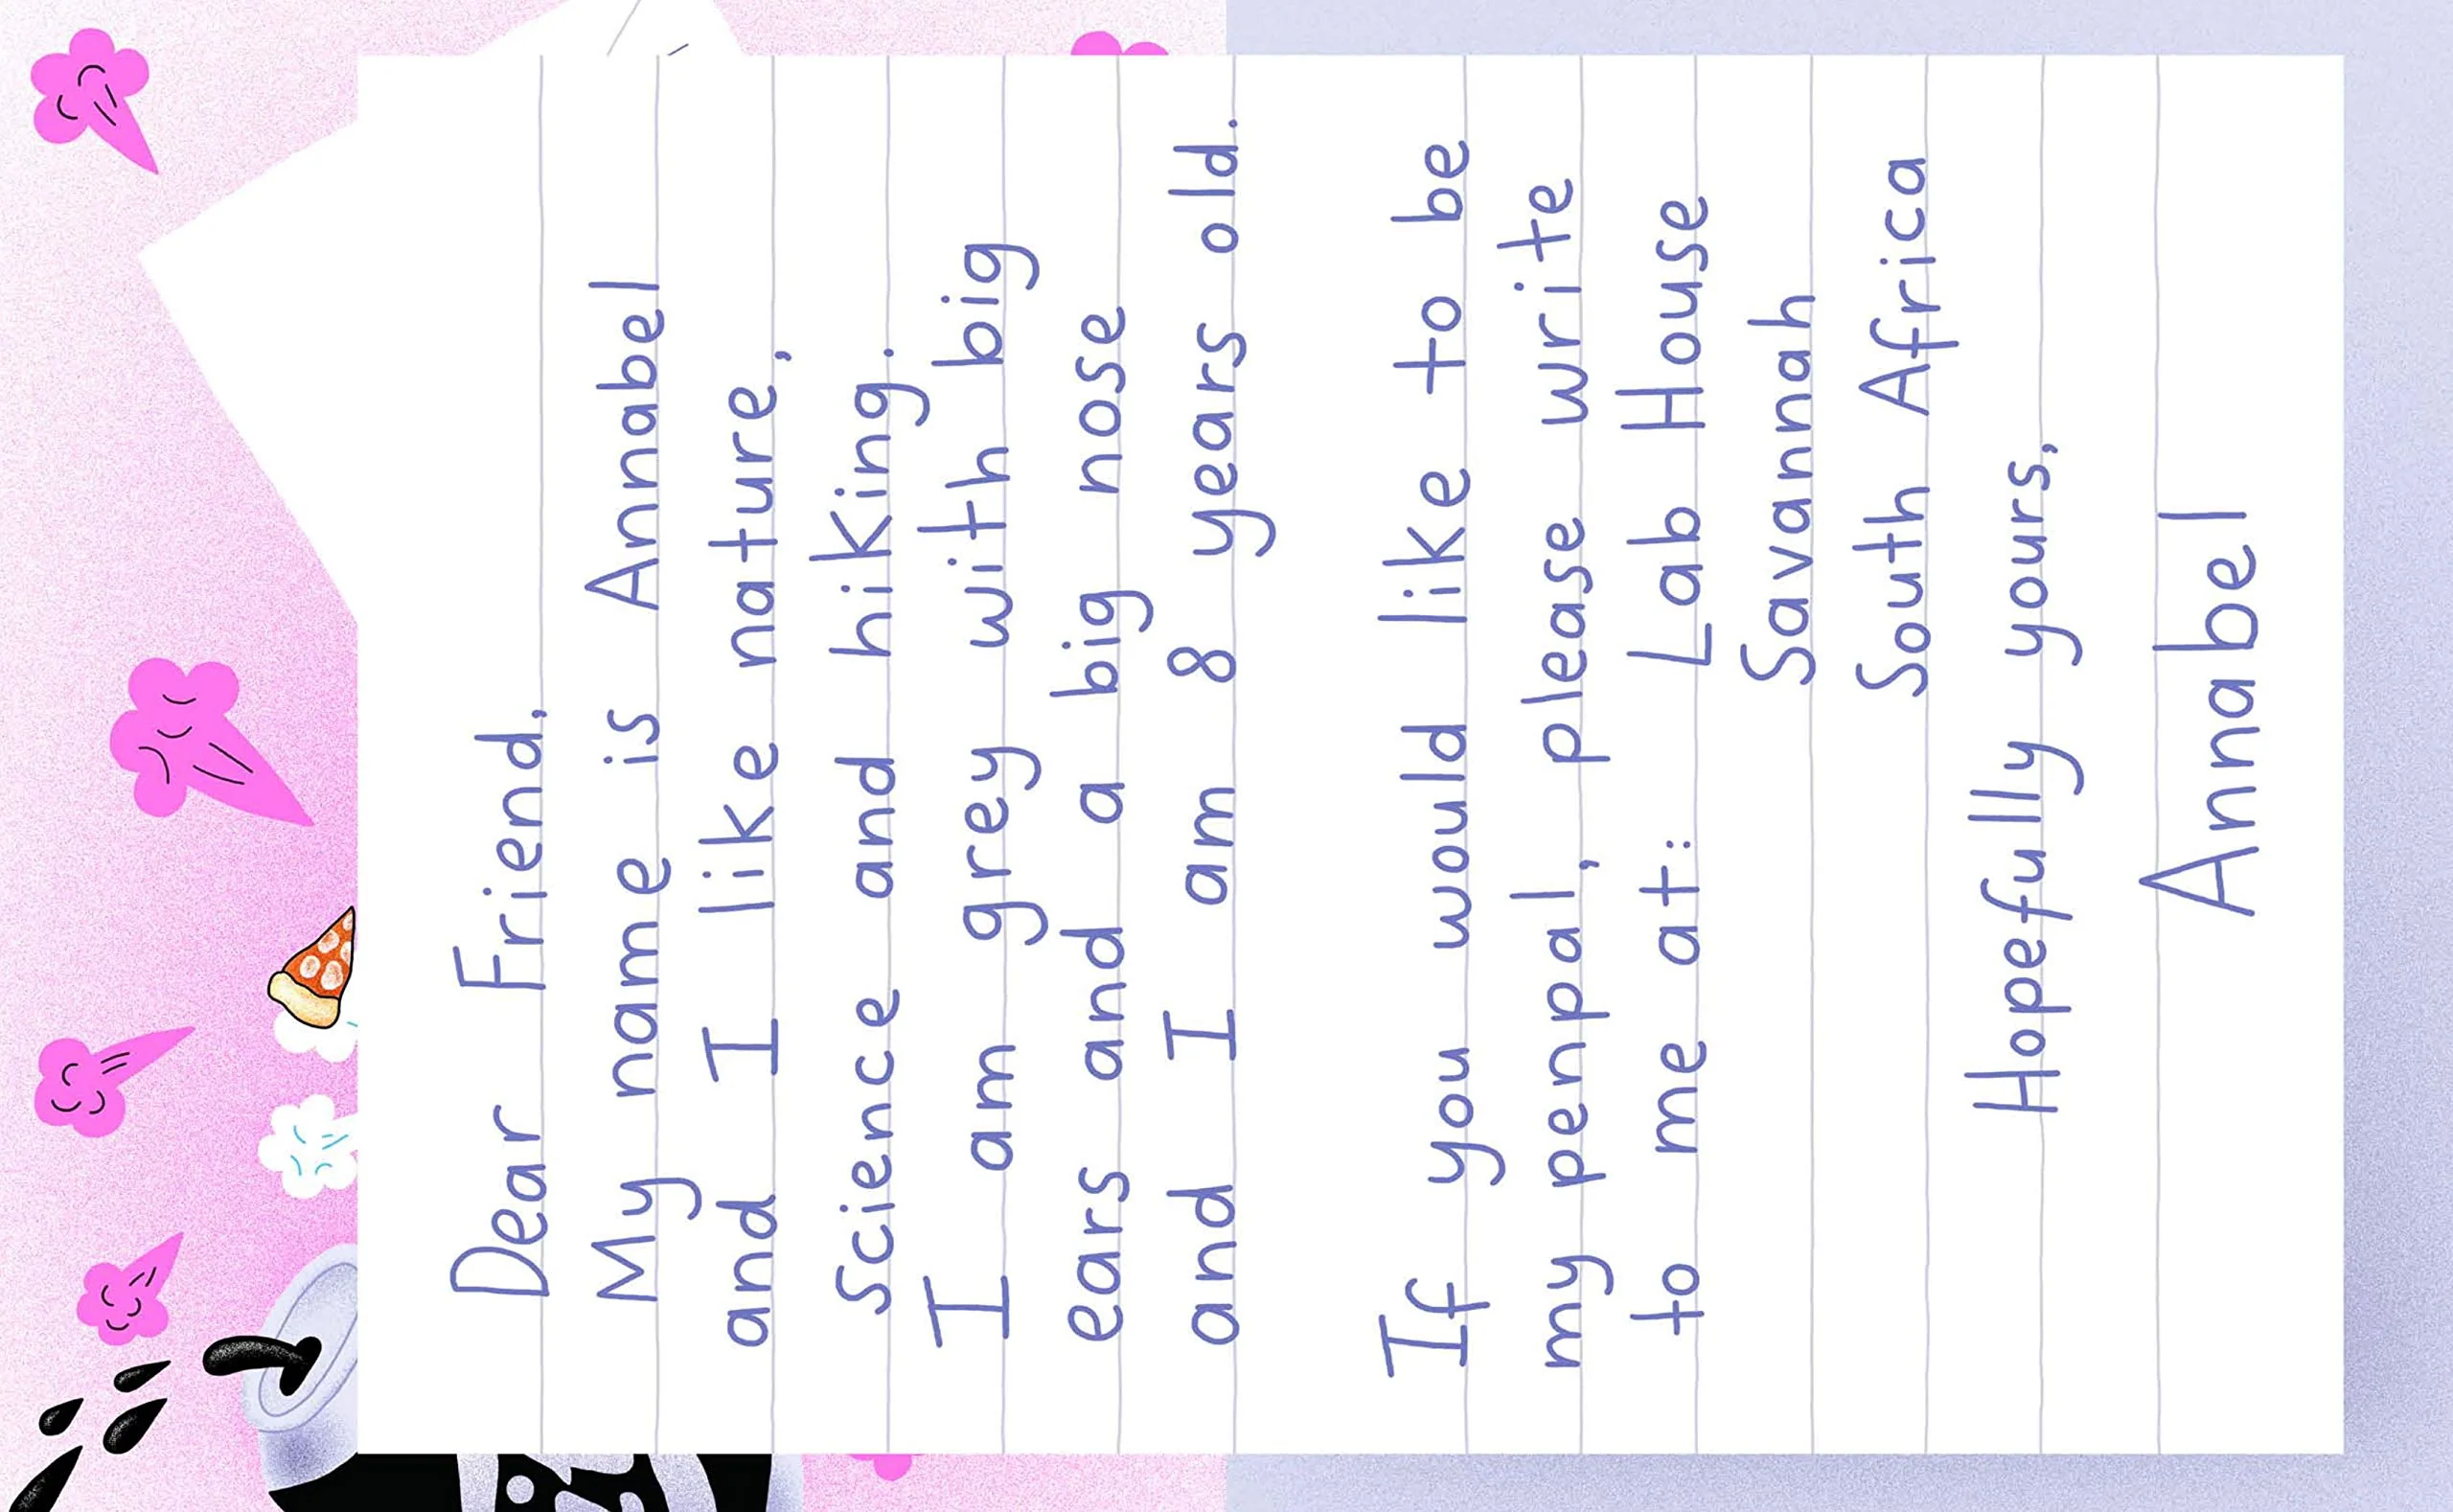 Dear Friend,
My name is Annabel
and I like nature,
science and hiking.
I am grey with big
ears and a big nose
and I am 8 years old.
If you would like to be
my penpal, please write
to me at: Lab House
Savannah
South Africa
Hopefully yours,
Annabel